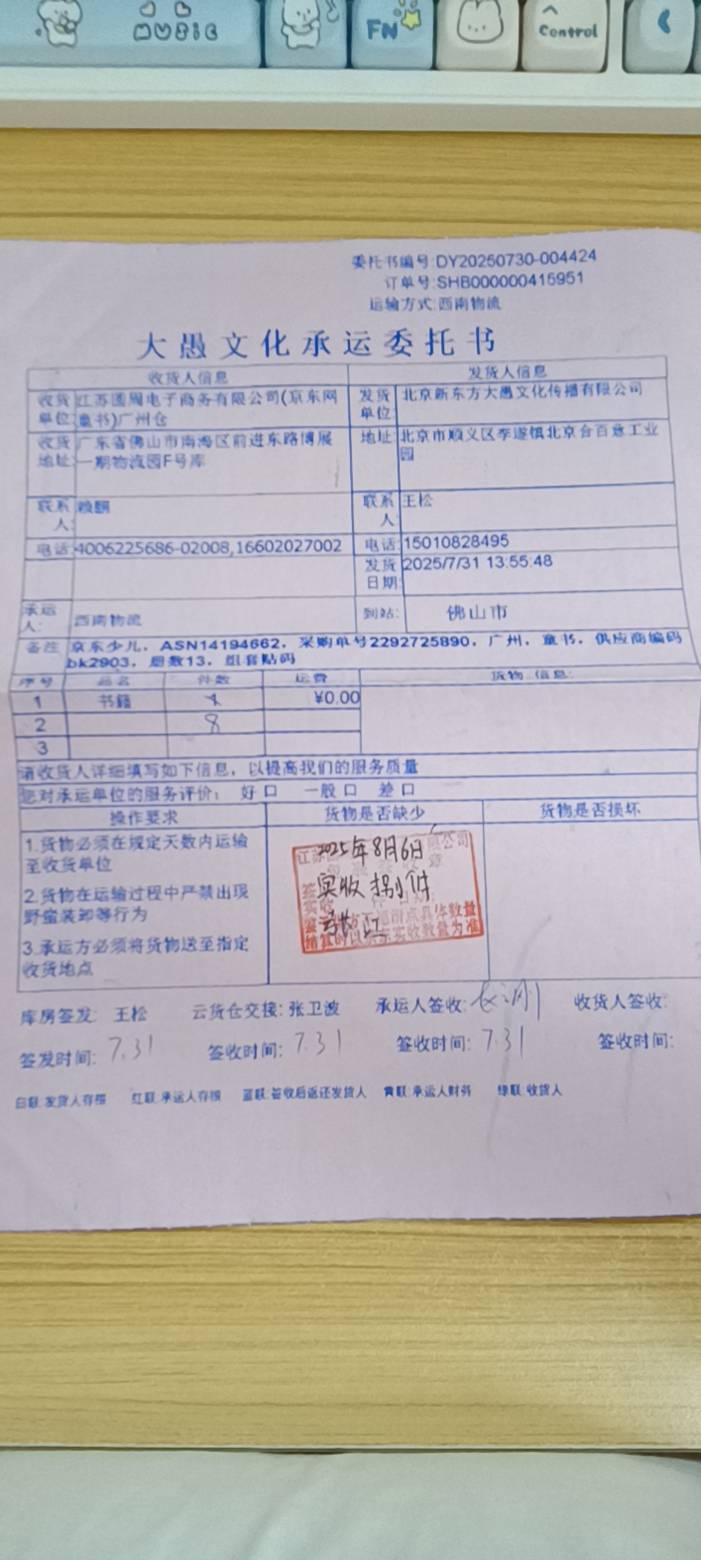 MUSIC
FN
Control
委托书编号:DY20250730-004424
订单号:SHB000000415951
运输方式:西南物流
大愚文化承运委托书
收货人信息 发货人信息
收货单位: 江苏圆周电子商务有限公司(京东网童书)广州仓 发货单位: 北京新东方大愚文化传播有限公司
收货地址: 广东省佛山市南海区前进东路博展一期物流园F号库 地址: 北京市顺义区李遂镇北京合百意工业园
联系人: 联系人: 王松
电话: 4006225686-02008,16602027002 电话: 15010828495
发货日期: 2025/7/31 13:55:48
承运人: 西南物流 到站: 佛山市
备注 京东少儿，ASN14194662，采购单号2292725890，广州，童书，供应商编码
bk2903，册数13，组套贴码
序号 品名 件数 运费 货物 信息:
1 书籍 ¥0.00
2 8
3
请收货人详细填写如下信息，以提高我们的服务质量
您对承运单位的服务评价： 好口 一般口 差口
操作要求 货物是否缺少 货物是否损坏
1.货物必须在规定天数内运输
至收货单位
2.货物在运输过程中严禁出现
野蛮装卸等行为
3.承运方必须将货物送至指定
收货地点
2025年8月6日
实收捌件
库房签发: 王松 云货仓交接: 张卫波 承运人签收: 收货人签收:
签发时间: 7.31 签收时间: 7.31 签收时间: 7.31 签收时间:
白联:发货人存根 红联:承运人存根 蓝联:签收后返还发货人 黄联:承运人财务 绿联:收货人